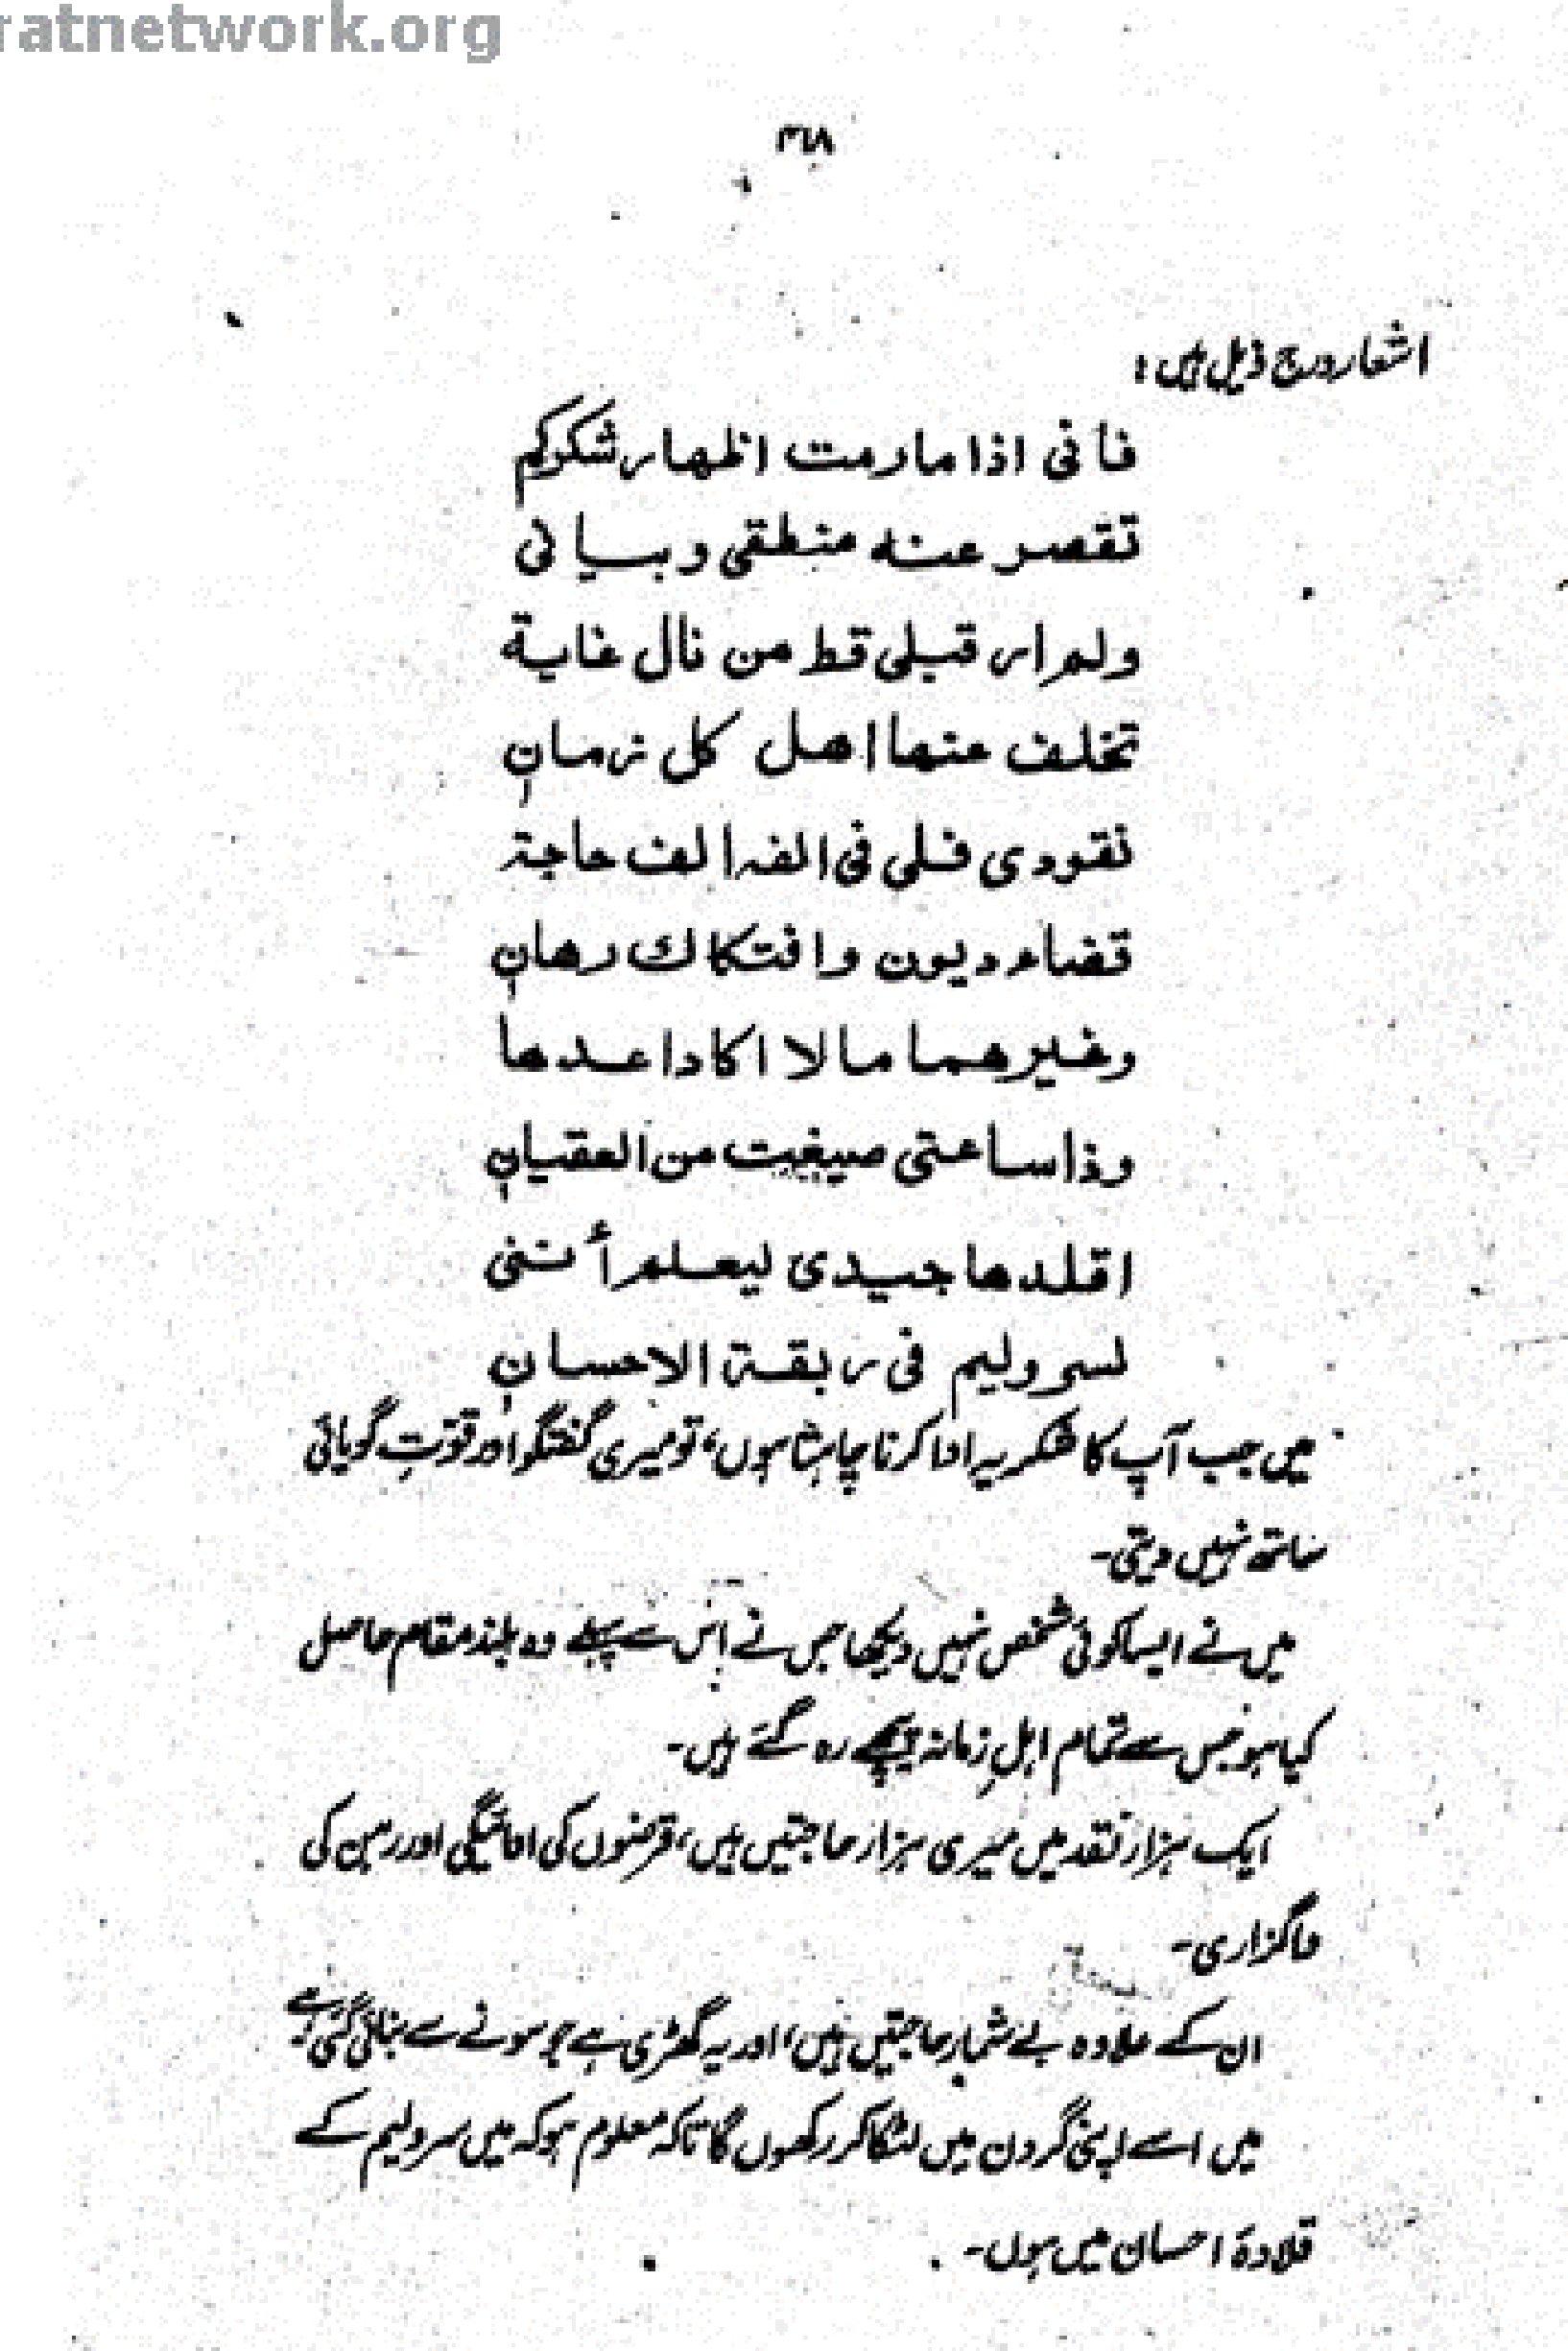 ratnetwork.org
۳۶۸
اشعار درج ذیل ہیں:
فأنی اذا مارمت اظهار شکرکم
تقصر عنه منطقی وبیانی
ولم ار قبلی قط من نال غایة
تخلف عنها اهل کل زمان
نقودی فلی فی الفہ الف حاجة
قضاء دیون وافتکاک رهان
وغیرهما مالا اکاد اعدها
وذا ساعتی صیغت من العقیان
اقلدها جیدی لیعلم أننی
لسر ولیم فی ربقة الاحسان
میں جب آپ کا شکریہ ادا کرنا چاہتا ہوں، تو میری گفتگو اور قوّتِ گویائی
ساتھ نہیں دیتی۔
میں نے ایسا کوئی شخص نہیں دیکھا جس نے اس سے پہلے وہ بلند مقام حاصل
کیا ہو جس سے تمام اہلِ زمانہ پیچھے رہ گئے ہیں۔
ایک ہزار نقد میں میری ہزار حاجتیں ہیں، قرضوں کی ادائیگی اور رہن کی
واگزاری۔
ان کے علاوہ بے شمار حاجتیں ہیں، اور یہ گھڑی ہے جو سونے سے بنائی گئی ہے
میں اسے اپنی گردن میں لٹکا کر رکھوں گا تاکہ معلوم ہو کہ میں سر ولیم کے
قلادۂ احسان میں ہوں۔